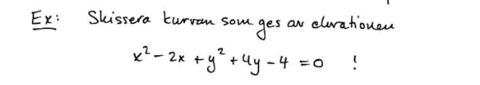 Ex: Skissera kurvan som ges av ekvationen
x² - 2x + y² + 4y - 4 = 0 !